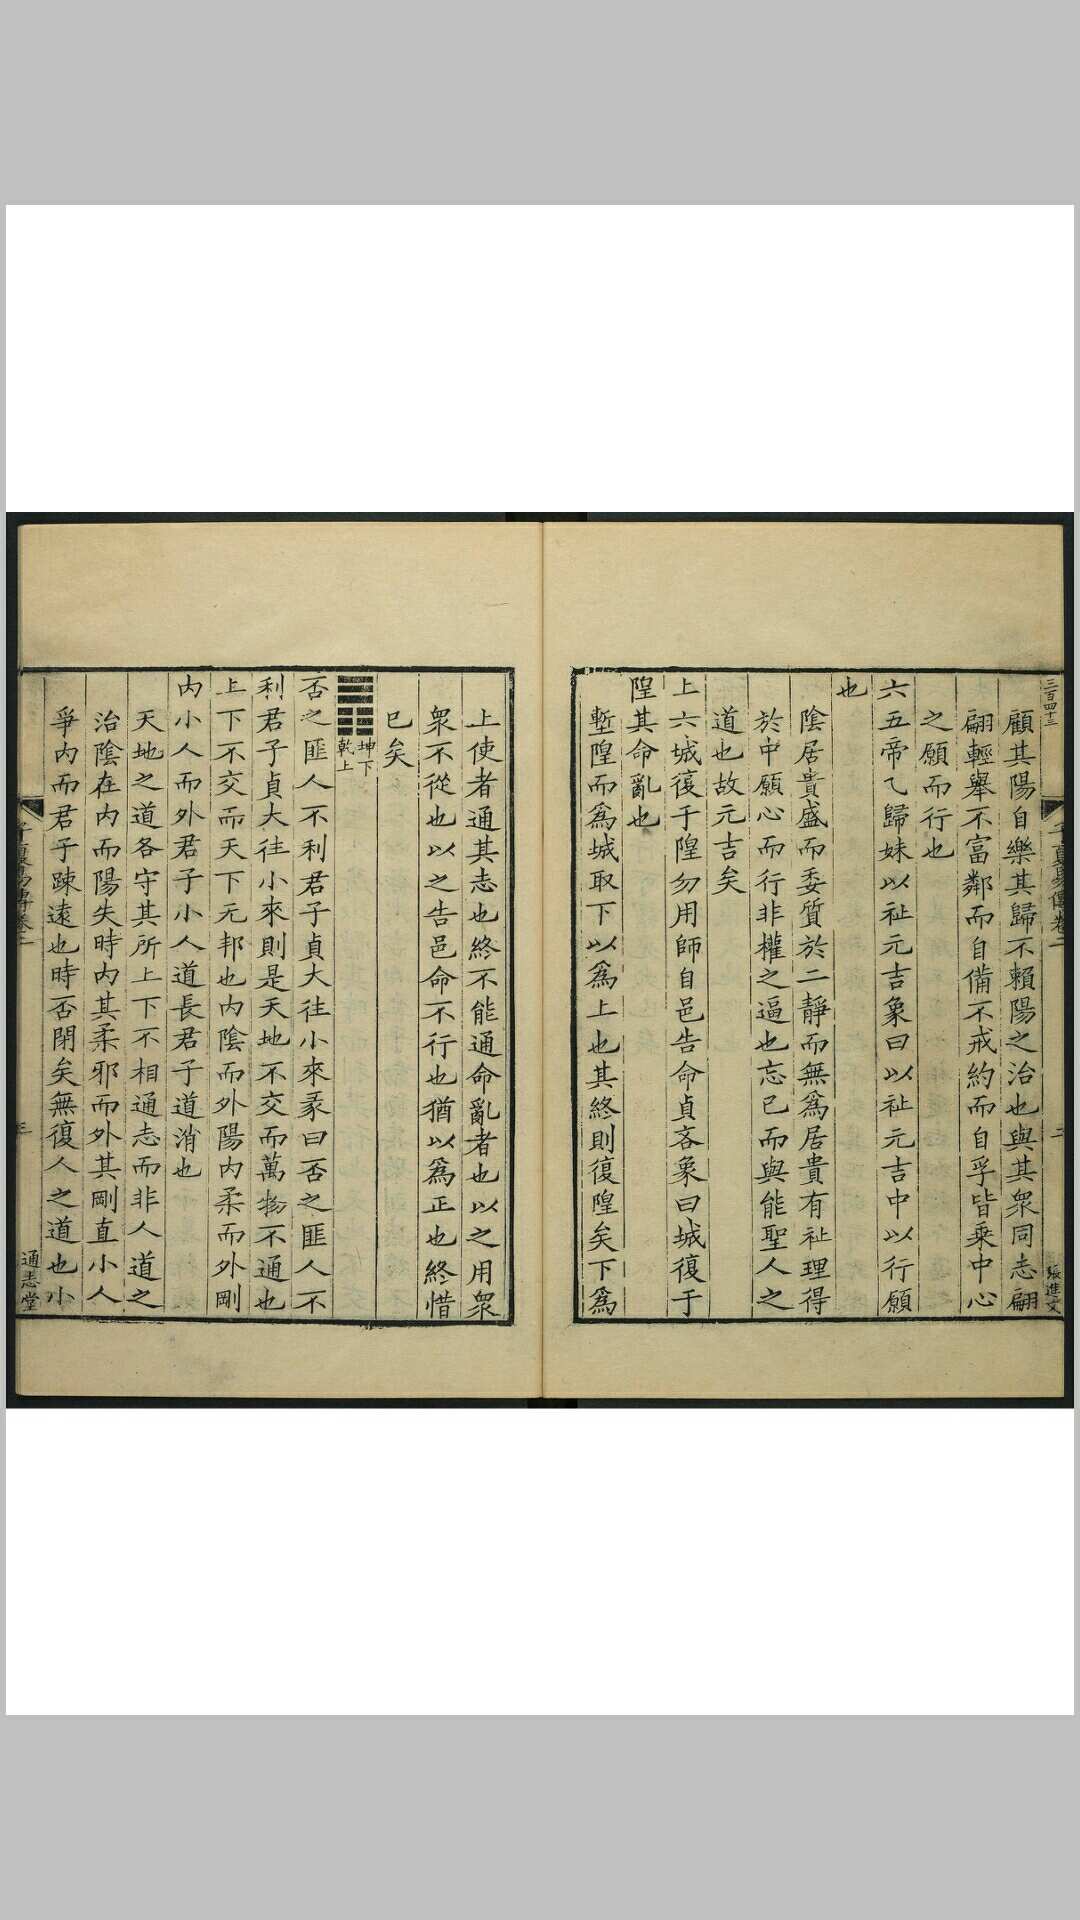 三百四十三
子夏易傳卷二
二
張進文
顧其陽自樂其歸不賴陽之治也與其衆同志翩
翩輕舉不富鄰而自備不戒約而自孚皆乘中心
之願而行也
六五帝乙歸妹以祉元吉象曰以祉元吉中以行願
也
陰居貴盛而委質於二靜而無爲居貴有祉理得
於中願心而行非權之逼也忘已而與能聖人之
道也故元吉矣
上六城復于隍勿用師自邑告命貞吝象曰城復于
隍其命亂也
塹隍而爲城取下以爲上也其終則復隍矣下爲
上使者通其志也終不能通命亂者也以之用衆
衆不從也以之告邑命不行也猶以爲正也終惜
已矣
坤下
乾上
否之匪人不利君子貞大往小來彖曰否之匪人不
利君子貞大往小來則是天地不交而萬物不通也
上下不交而天下无邦也内陰而外陽内柔而外剛
内小人而外君子小人道長君子道消也
天地之道各守其所上下不相通志而非人道之
治陰在内而陽失時内其柔邪而外其剛直小人
爭内而君子踈遠也時否閉矣無復人之道也小
子夏易傳卷二
三
通志堂